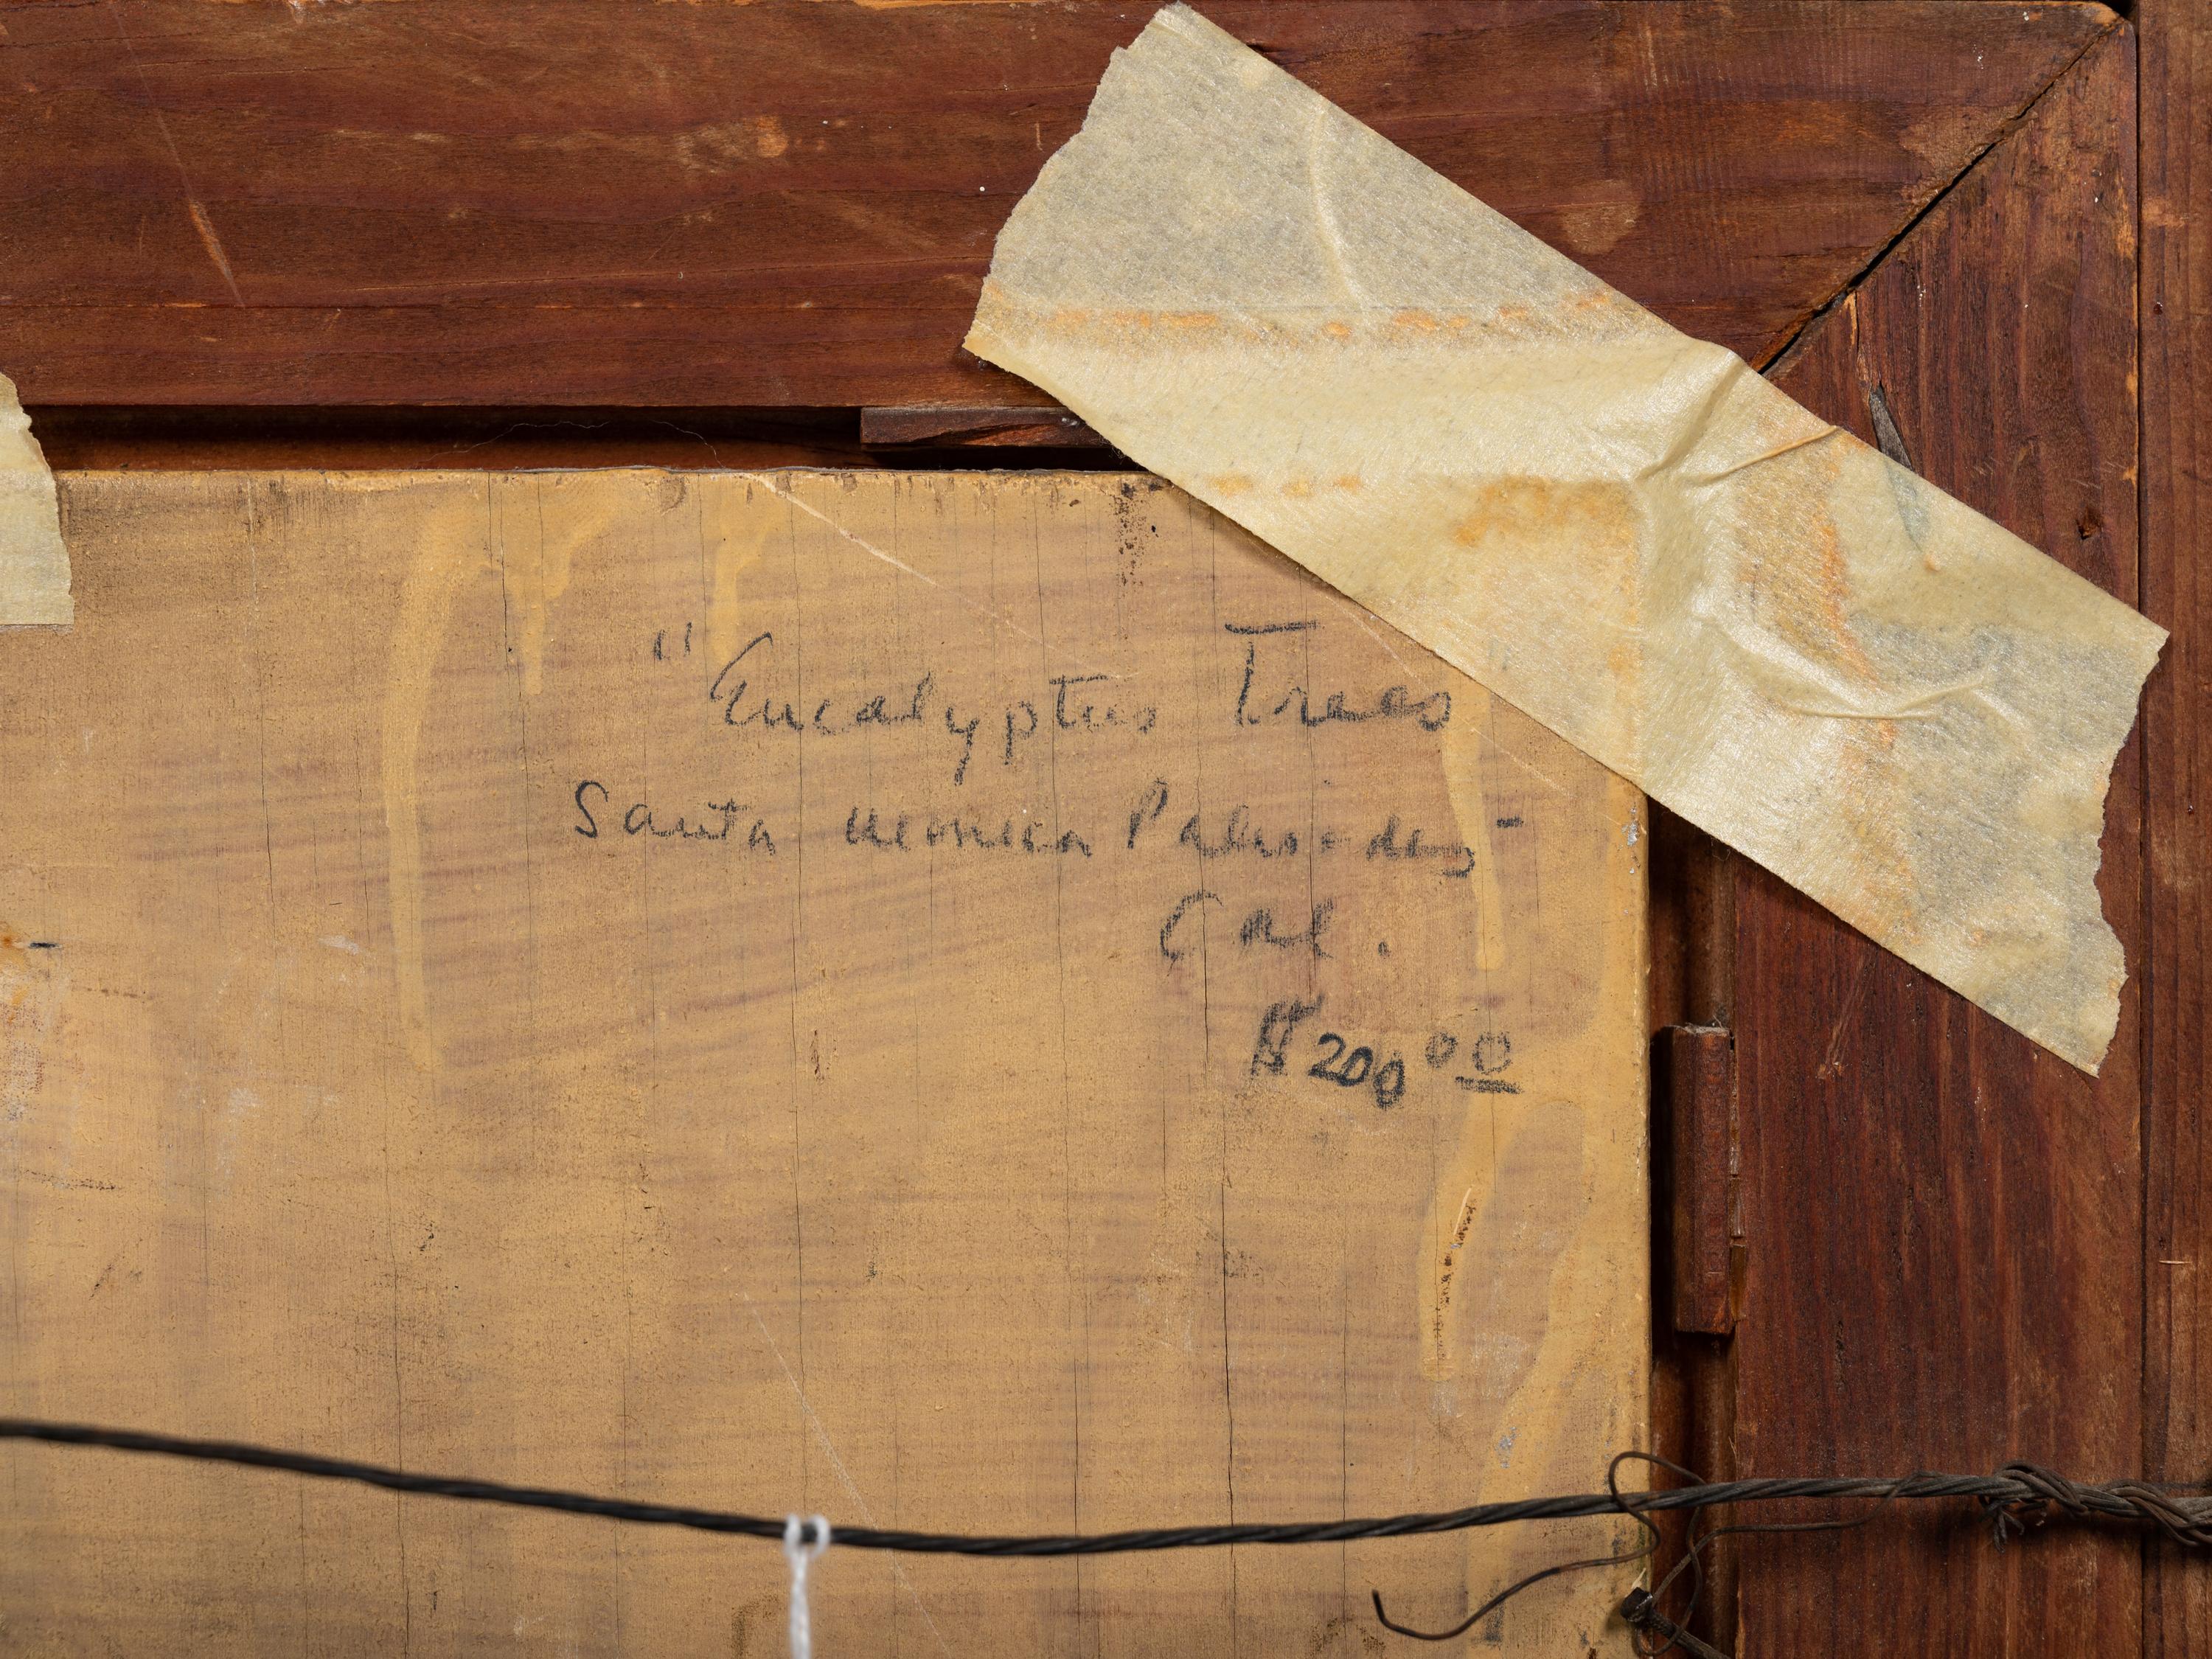 "Eucalyptus Trees
Santa Monica Palisades -
Cal.
$200 00